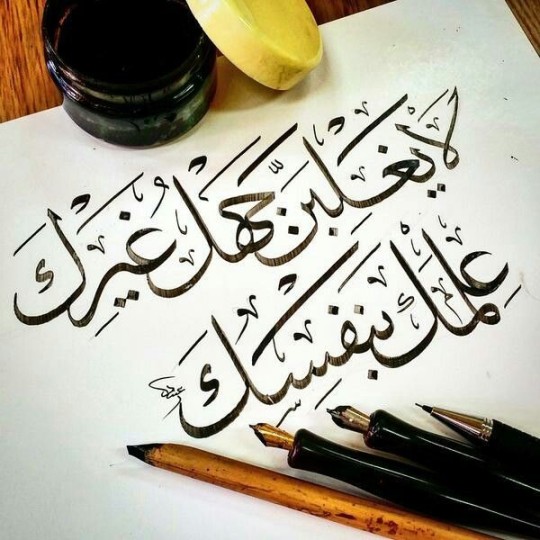 لا يغلبنّ جهل غيرك
علمك بنفسك